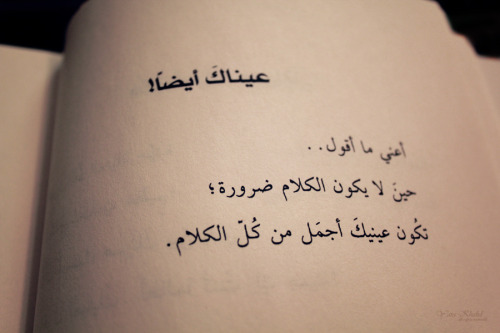 عيناكَ أيضاً!
أعني ما أقول..
حينَ لا يكون الكلام ضرورة؛
تكُون عينيكَ أجمَل من كُلّ الكلام.